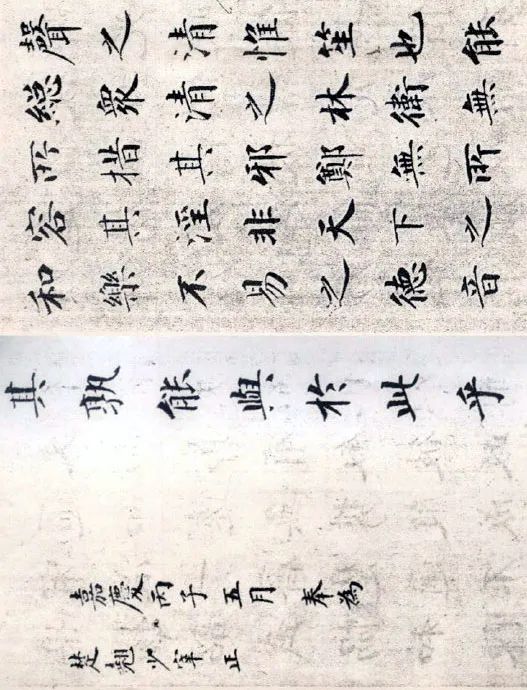 聲之清惟笙也能
緫眾清之林衛無
所措其邪鄭無所
容其淫非天下之
和樂不易之德音
其孰能與於此乎
嘉慶丙子五月 奉為
楚翹少宰 正